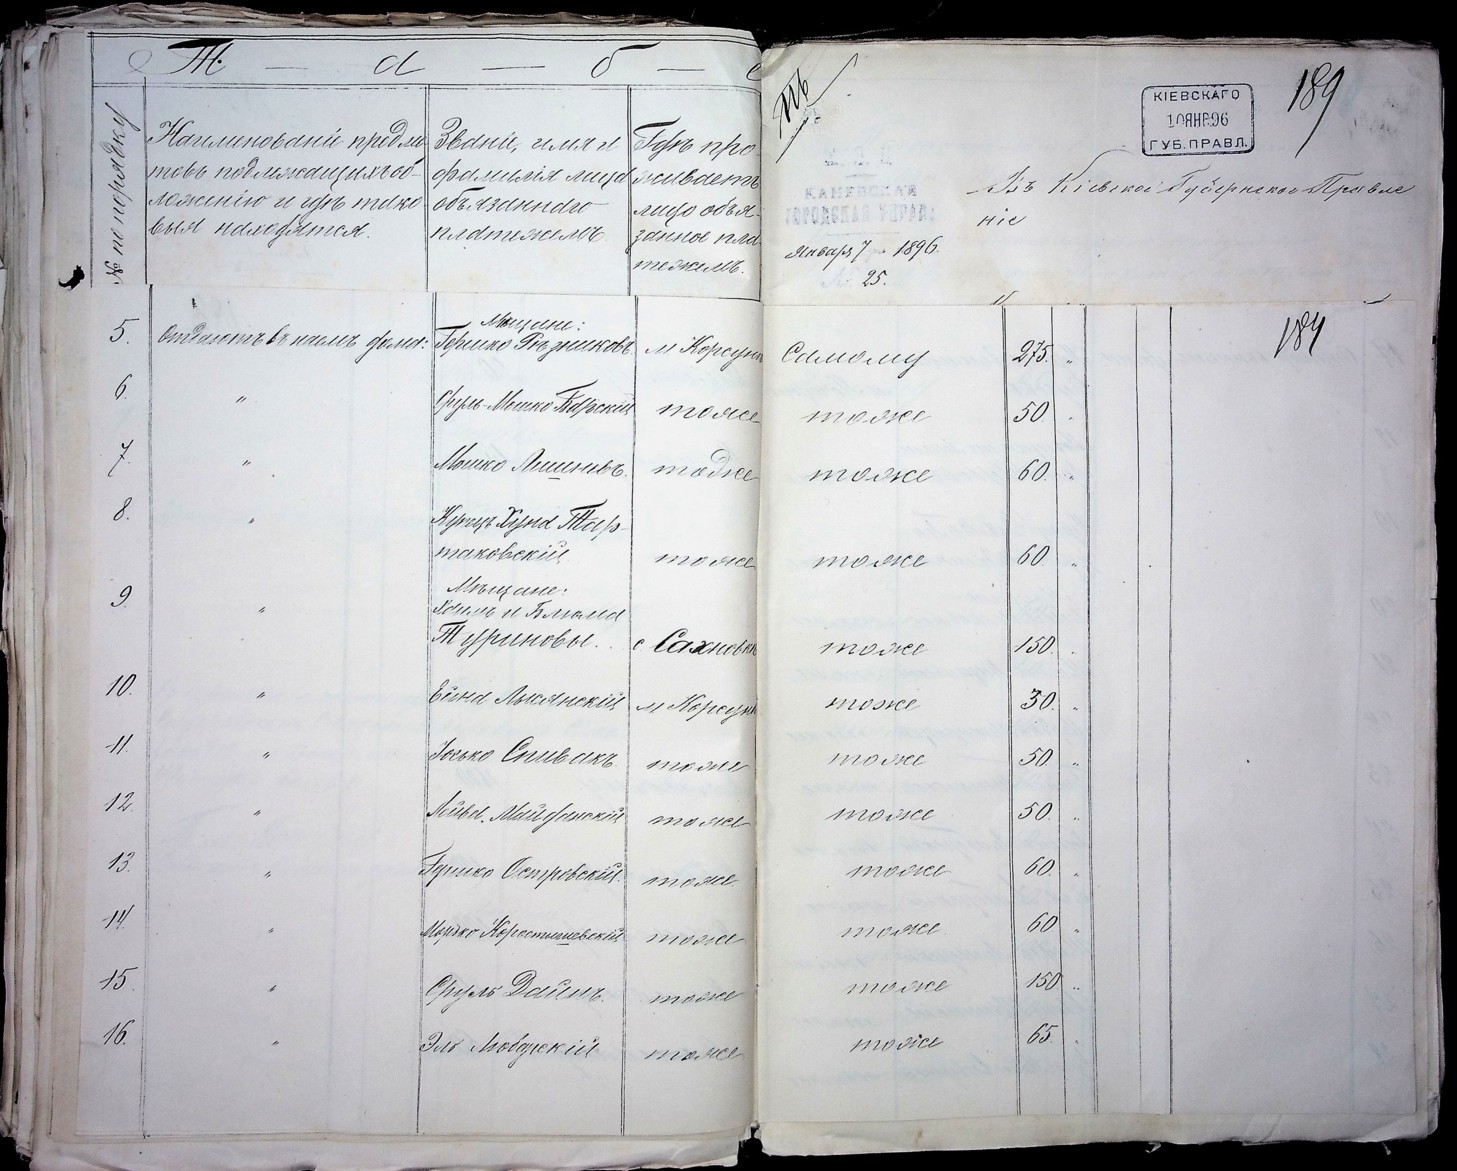 Т — а — б —
№ по порядку
Наименованіе предме-
товъ подлежащихъ об-
ложенію и гдѣ тако
выя находятся.
Званіе, имя и
фамилія лица
обязаннаго
платежемъ.
Гдѣ про-
живаетъ
лицо обя-
занное пла-
тежемъ.
КІЕВСКАГО
10 ЯНВ. 96
ГУБ. ПРАВЛ.
189
КАНЕВСКАЯ
ГОРОДСКАЯ УПРАВА
Января 7 1896
25.
Въ Кіевское Губернское Правле
ніе
184
5. Отдаютъ въ наемъ дома: Мѣщане:
Гершко Рѣзниковъ м Корсунь Самому 275. "
6. " Сруль-Мошко Барскій тоже тоже 50. "
7. " Мошко тоже тоже 60. "
8. " Купецъ Хуна Тар-
таковскій тоже тоже 60. "
9. " Мѣщане:
Хаимъ и Блюма
Туриновы. с Сахновка тоже 150. "
10. " Лысянскій м Корсунь тоже 30. "
11. " Іосько Спивакъ тоже тоже 50. "
12. " Лейба Майданскій тоже тоже 50. "
13. " Гершко Островскій. тоже тоже 60. "
14. " Мошко Коростышевскій тоже тоже 60 "
15. " Сруль тоже тоже 150 "
16. " Эль Любарскій тоже тоже 65. "